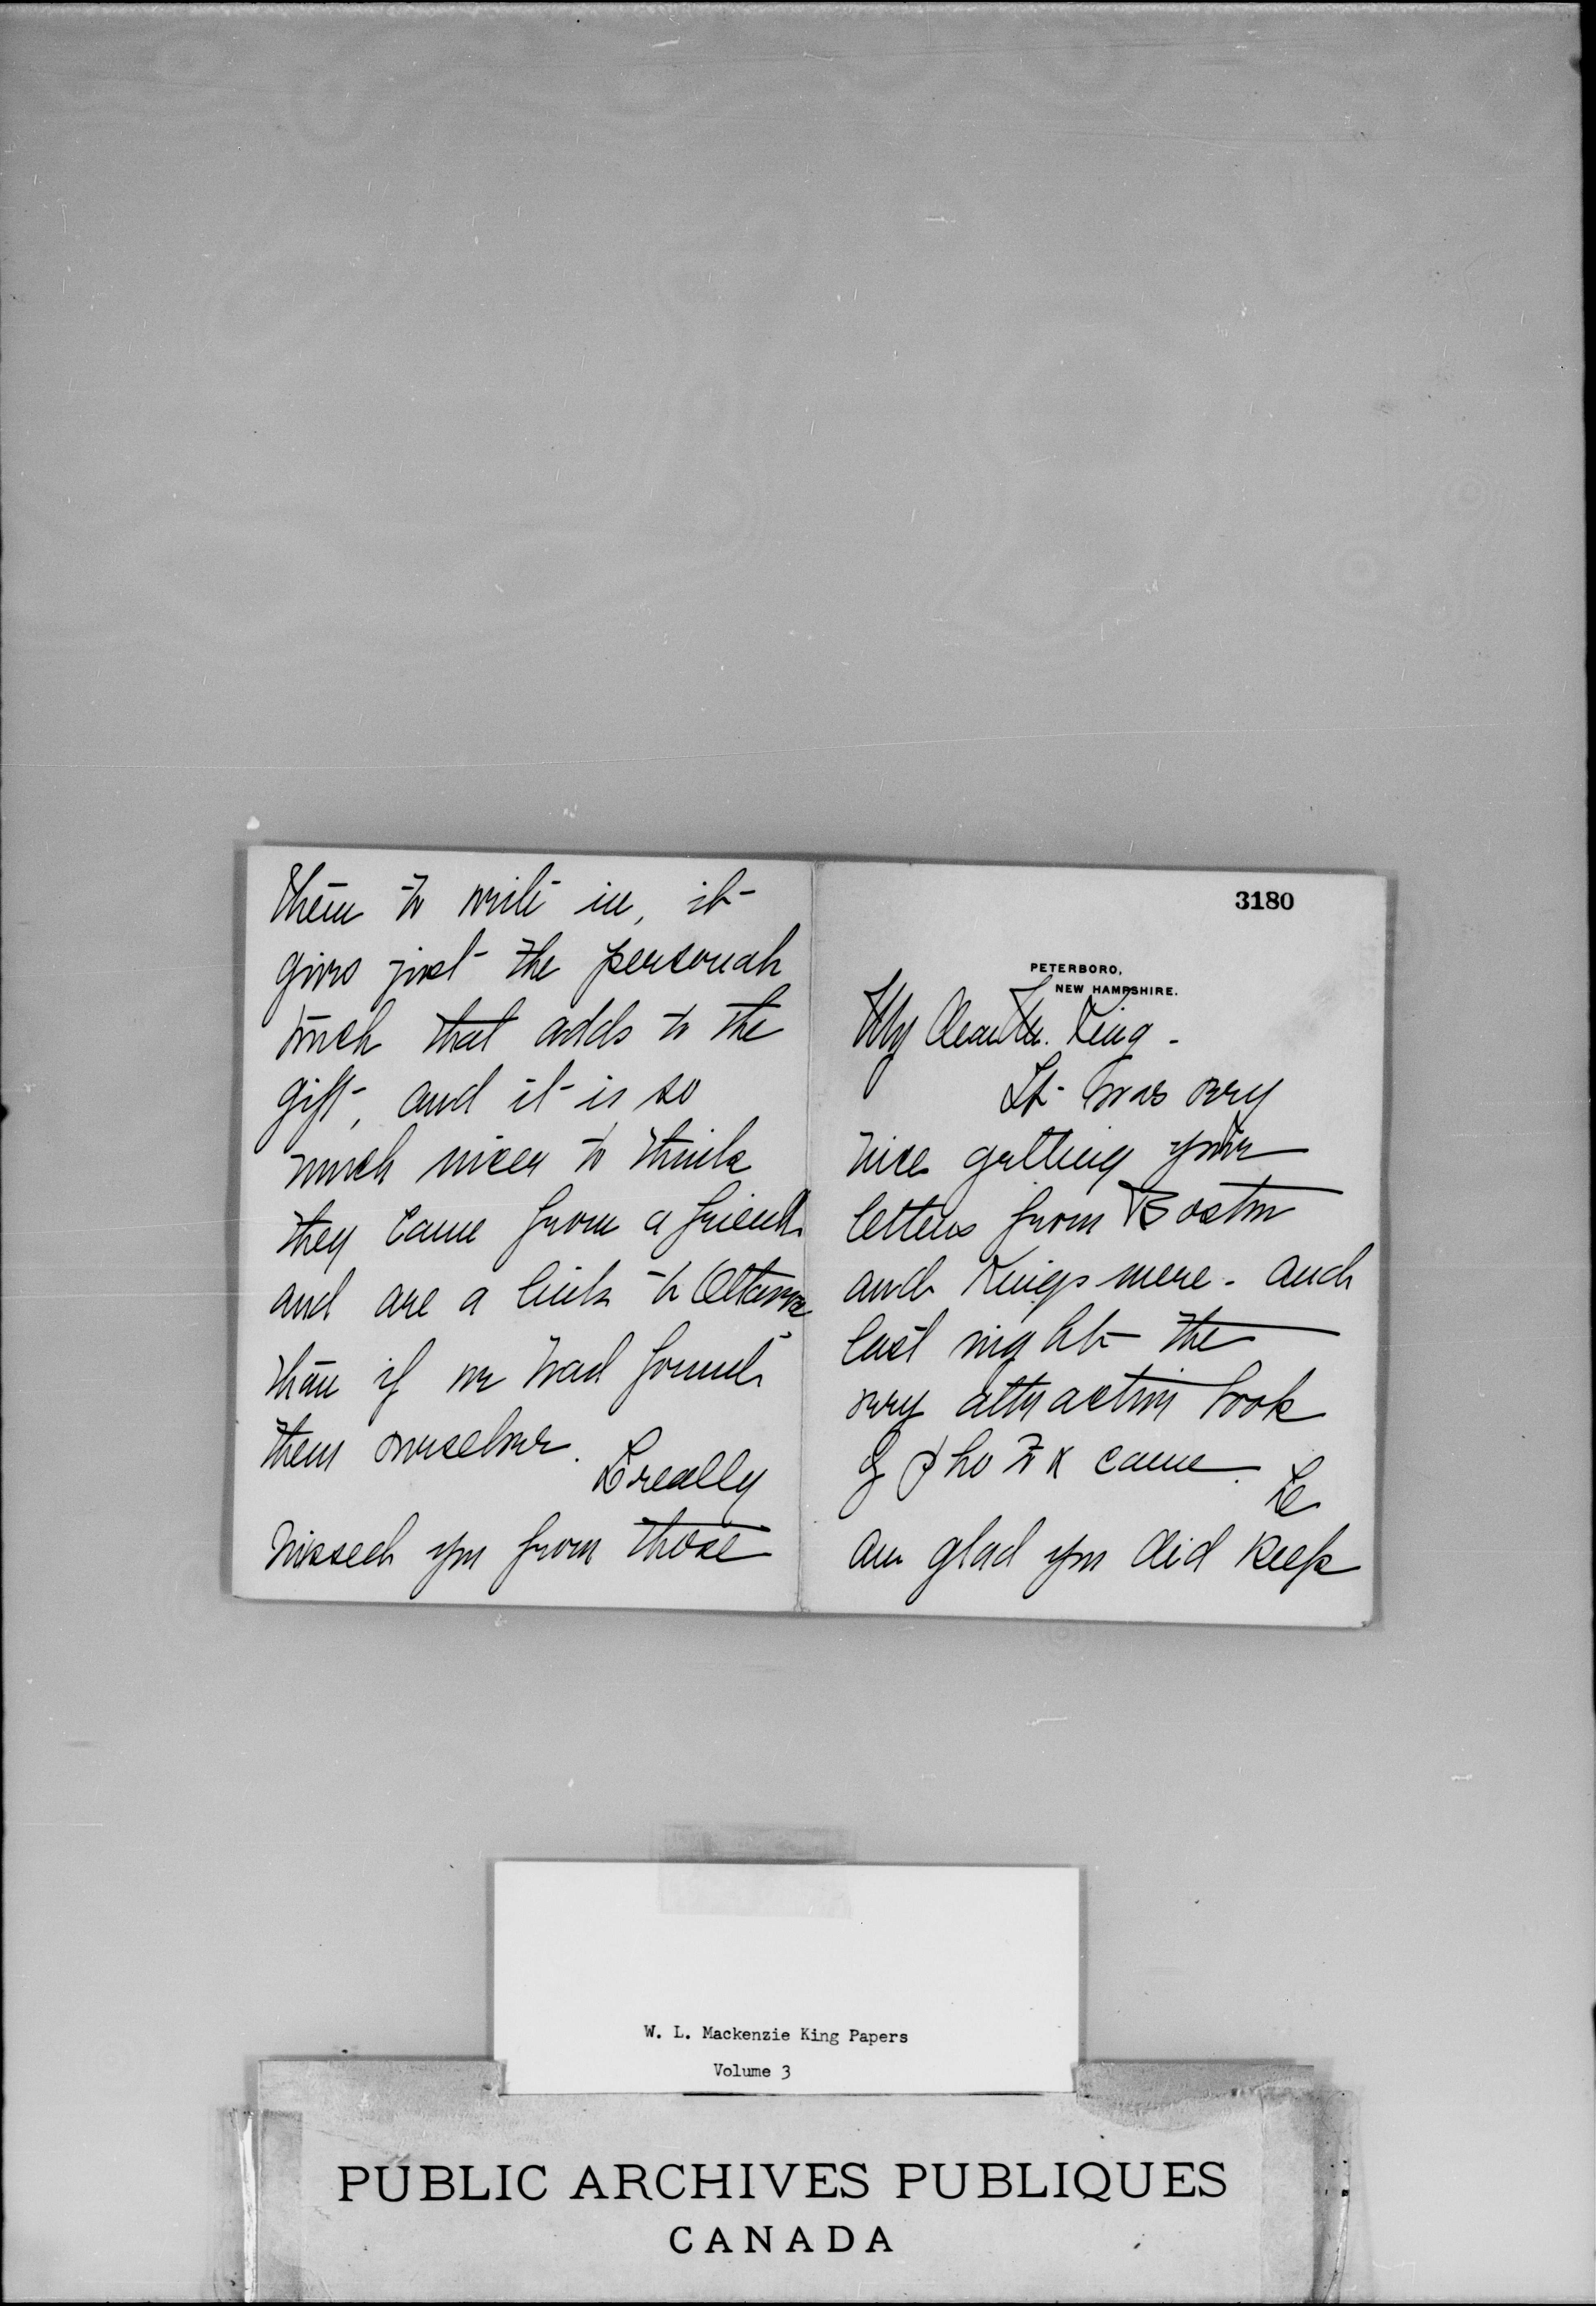 3180
PETERBORO,
NEW HAMPSHIRE.
My dear Mr. King -
It was very
nice getting your
letters from Boston
and Kingsmere - and
last night the
very attractive book
came. I
am glad you did keep
them to write in, it
gives just the personal
touch that adds to the
gift, and it is so
much nicer to think
they came from a friend
and are a link to Ottawa
than if we had found
them ourselves. I really
missed you from those
W. L. Mackenzie King Papers
Volume 3
PUBLIC ARCHIVES PUBLIQUES
CANADA